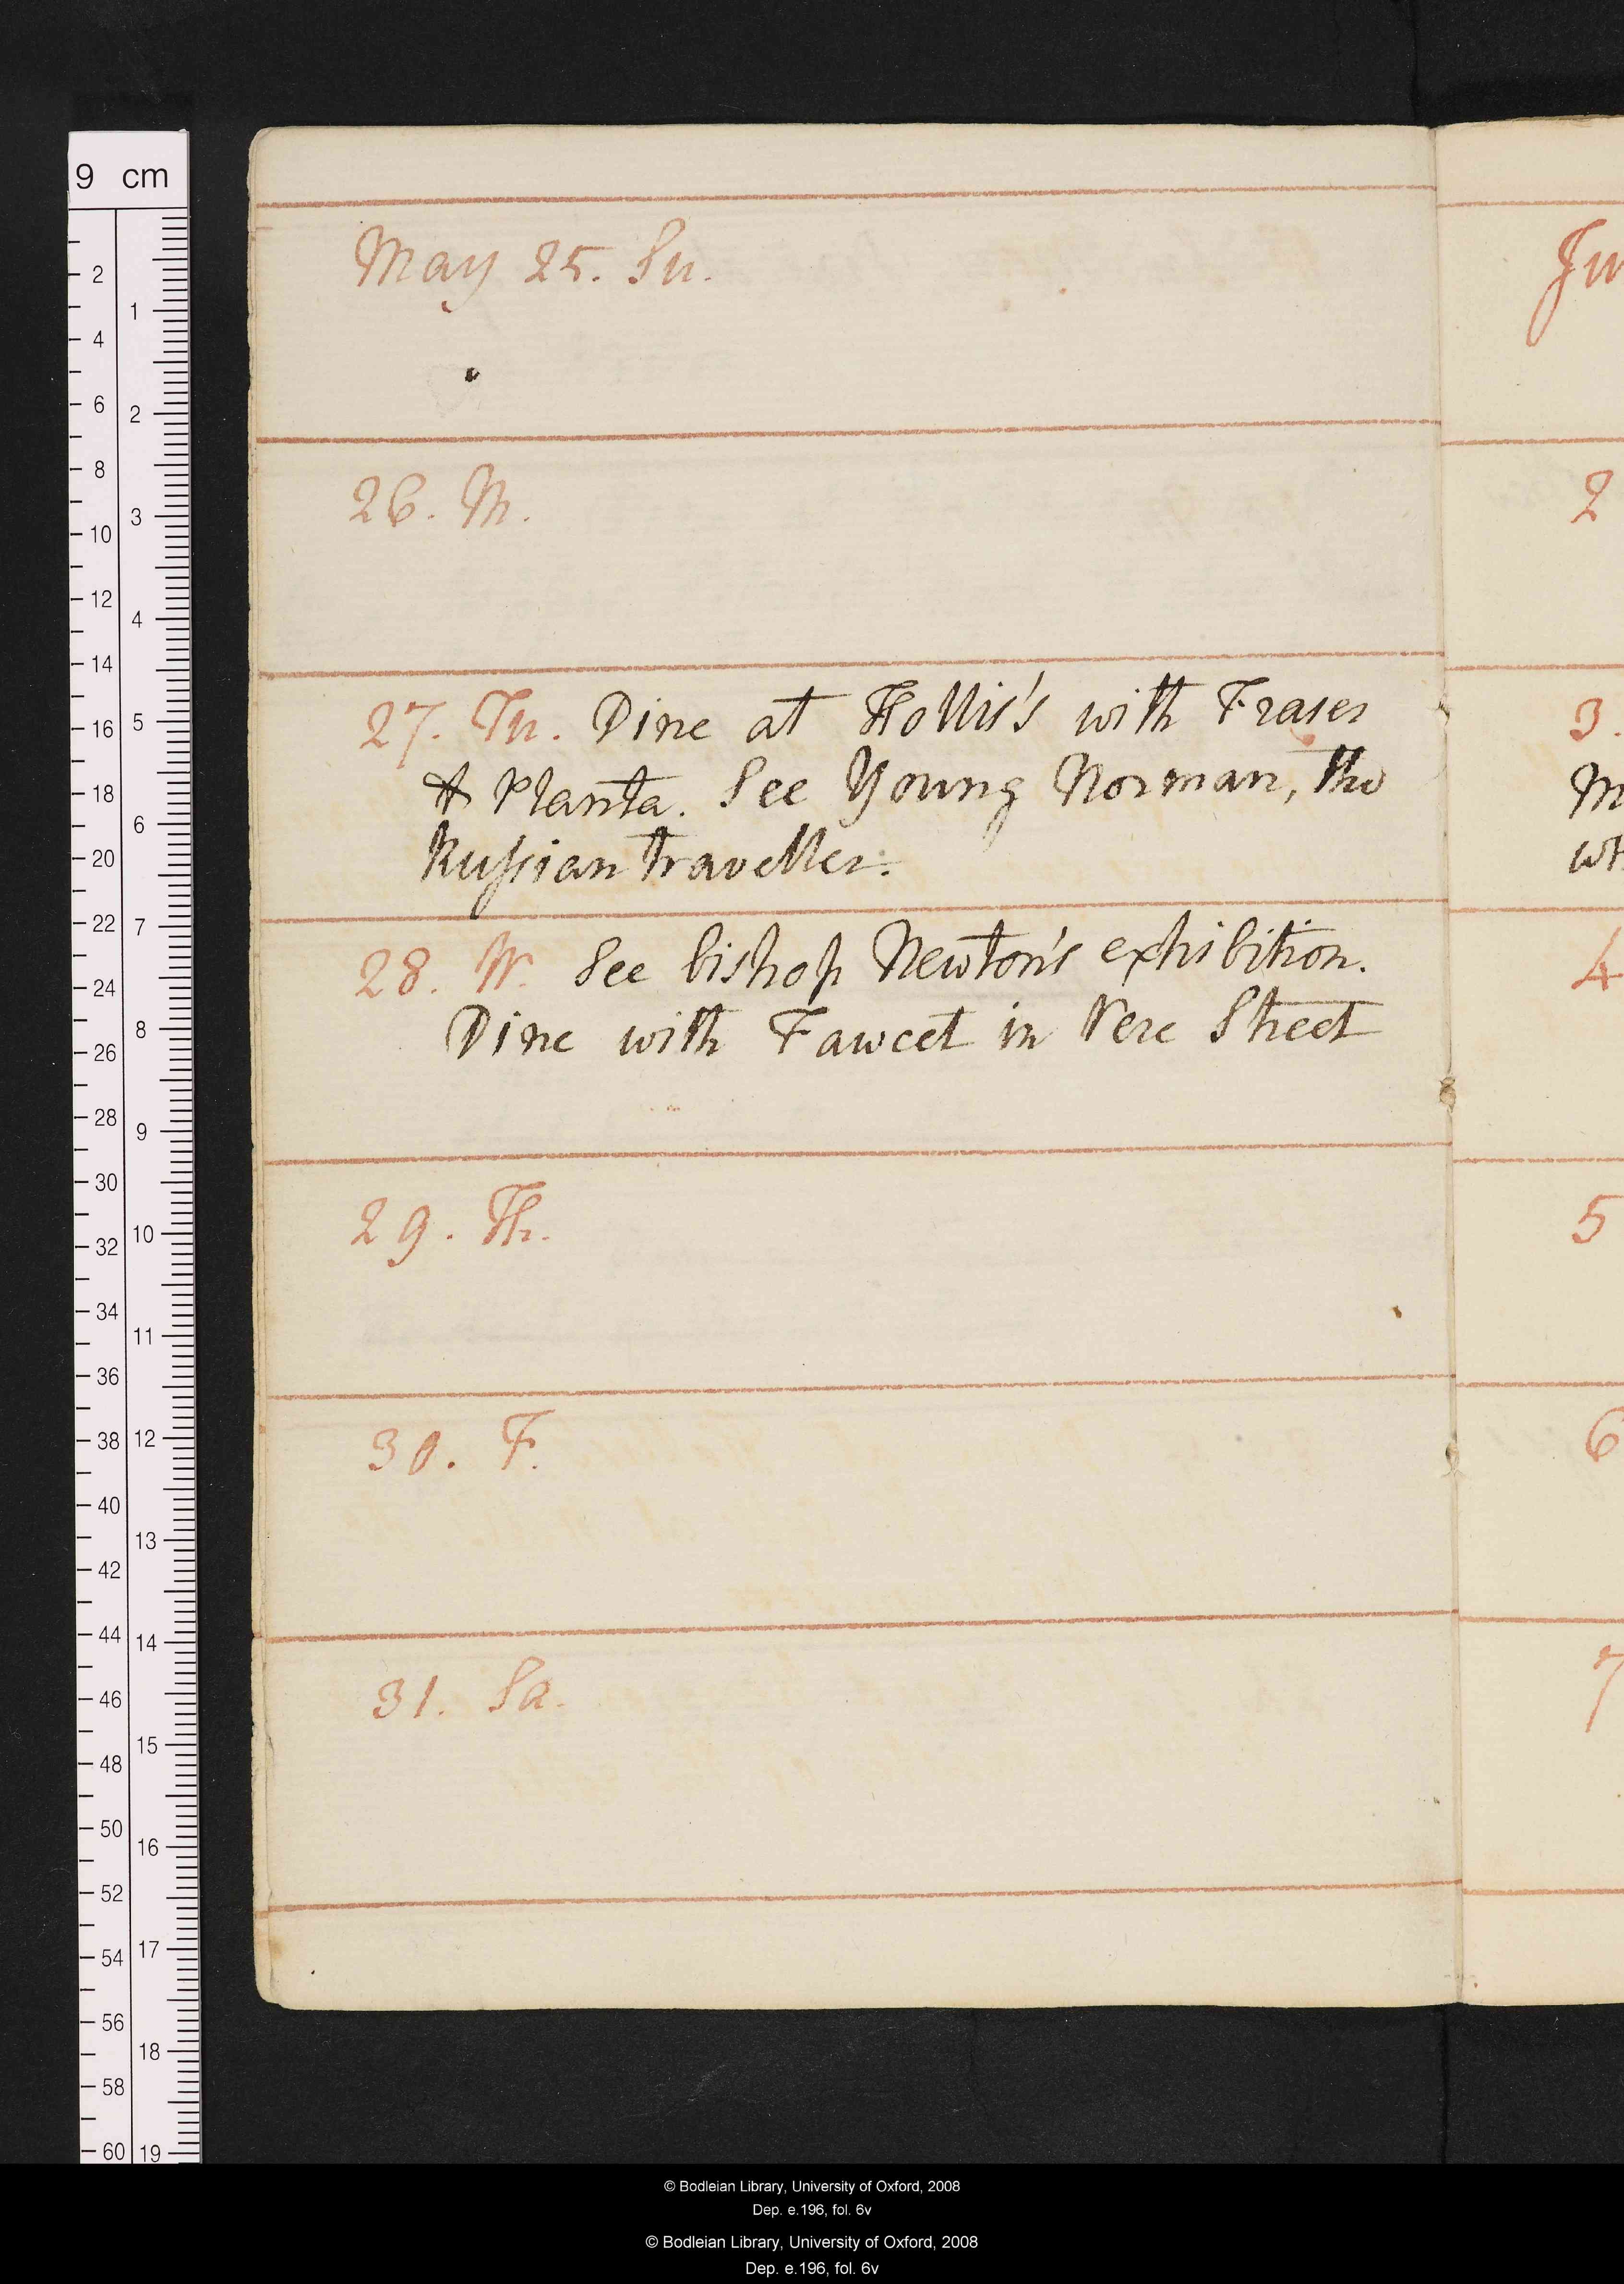 May 25. Su.
26. M.
27. Tu. Dine at Hollis's with Fraser
& Planta. See Young Norman, the
Russian traveller.
28. W. See bishop Newton's exhibition.
Dine with Fawcet in Vere Street
29. Th.
30. F.
31. Sa.
Ju
2
3.
M
wh
4
5
6
7
9 cm
2
4
6
8
10
12
14
16
18
20
22
24
26
28
30
32
34
36
38
40
42
44
46
48
50
52
54
56
58
60
1
2
3
4
5
6
7
8
9
10
11
12
13
14
15
16
17
18
19
© Bodleian Library, University of Oxford, 2008
Dep. e.196, fol. 6v
© Bodleian Library, University of Oxford, 2008
Dep. e.196, fol. 6v